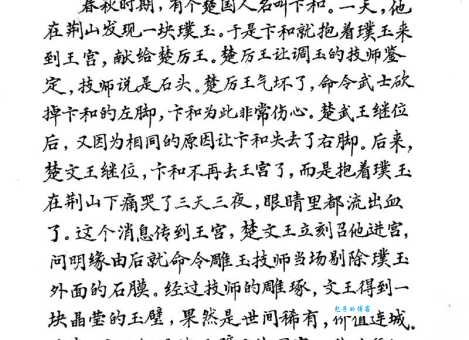 春秋时期，有个楚国人名叫卞和。一天，他
在荆山发现一块璞玉。于是卞和就抱着璞玉来
到王宫，献给楚厉王。楚厉王让调玉的技师鉴
定，技师说是石头。楚厉王气坏了，命令武士砍
掉卞和的左脚，卞和为此非常伤心。楚武王继位
后，又因为相同的原因让卞和失去了右脚。后来，
楚文王继位，卞和不再去王宫了，而是抱着璞玉
在荆山下痛哭了三天三夜，眼睛里都流出血
了。这个消息传到王宫，楚文王立刻召他进宫，
问明缘由后就命令雕玉技师当场剔除璞玉
外面的石膜。经过技师的雕琢，文王得到一
块晶莹的玉璧，果然是世间稀有，价值连城。